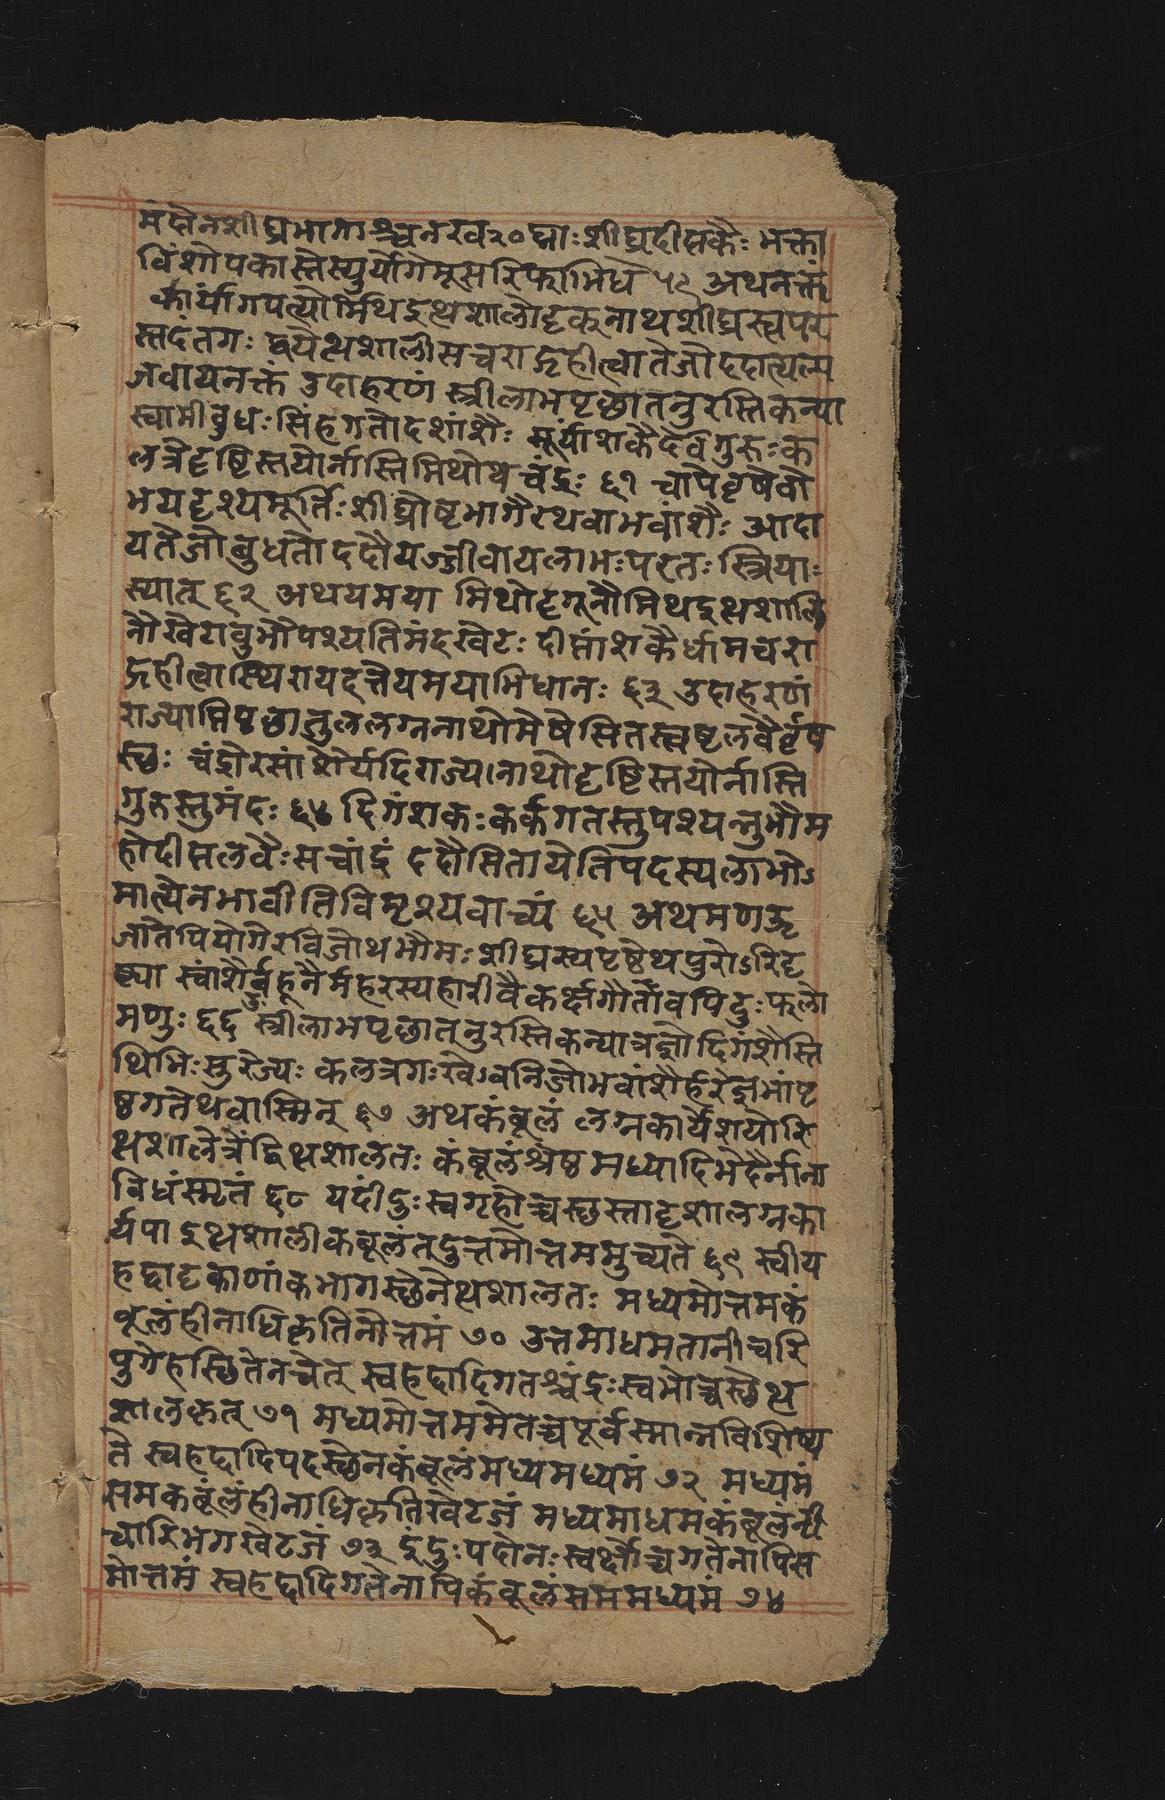 मंदोनशीघ्रभागाश्च्चनखव२०घ्नाःशीघ्रदीप्तकैः भक्ता
विंशोपकास्तेस्युर्योगेमूसरिफाभिधे ५९ अथनक्तं
कार्यागपत्योर्मिथिइत्थशालोदृक्नाथशीघ्रस्त्वपर
स्तदंतगः द्वयेत्थशालीसचराद्गृहीत्वातेजोददात्यल्प
जवायनक्तं उदाहरणं स्त्रीलाभपृछातनुरस्तिकन्या
स्वामीबुधःसिंहगतोदशांशैः सूर्यांशकैर्देवगुरुःक
लत्रेदृष्टिस्तयोर्नास्तिमिथोथचंद्रः ६१ चापेवृषेवो
भयदृश्यमूर्तिःशीघ्रोष्टभागैरथवाभवांशैः आदा
यतेजोबुधतोददौयज्जीवायलाभःपरतःस्त्रियाः
स्यात् ६२ अथयमया मिथोदृगूनौमिथइत्थशालि
नौखेटावुभौपश्यतिमंदखेटः दीप्तांशकैर्धामचरा
द्गृहीत्वास्थिरायदत्तेयमयाभिधानः ६३ उदाहरणं
राज्याप्तिपृछातुललग्ननाथोमेषेसितस्त्वष्टलवैर्वृष
स्छः चंद्रोरसांशैर्यदिराज्यनाथोदृष्टिस्तयोर्नास्ति
गुरुस्तुमंदः ६४ दिगंशकःकर्कगतस्तुपश्यन्नुभौम
होदीप्तलवैःसचांद्रं ददौसितायेतिपदस्यलाभोऽ
मात्येनभावीतिविमृश्यवाच्यं ६५ अथमणऊ
जातेपियोगेरविजोथभौमःशीघ्रस्यपृष्ठेथपुरोऽरिदृ
ष्ट्या स्वांशैर्बुहूनैर्महरस्यहारीवैकर्क्षगौतौवपिदुःफलो
मणुः ६६ स्त्रीलाभपृछातनुरस्तिकन्यात्रज्ञोदिगंशैस्ति
थिभिःसुरेज्यः कलत्रगःखेऽवनिजोभवांशैर्हरेज्ञभांष्ट
ष्ठगतेथवास्मिन् ६७ अथकंबूलं लग्नकार्येशयोरि
त्थशालेत्रेंद्वित्थशालतः कंबूलंश्रेष्ठमध्यादिभेदैर्नाना
विधंस्मृतं ६८ यदींदुःस्वगृहोच्चस्छस्तादृशालग्नका
र्यपा इत्थशालीकंबूलंतदुत्तमोत्तममुच्यते ६९ स्वीय
हद्दादृकाणांकभागस्छेनेत्थशालतः मध्यमोत्तमकं
बूलंहीनाधिकृतिनोत्तमं ७० उत्तमाधमतानीचरि
पुगेहस्छितेनचेत् स्वहद्दादिगतश्चंद्रःस्वभोच्चस्छेत्थ
शालकृत् ७१ मध्यमोत्तममेतच्चपूर्वस्मान्नविशिष्य
ते स्वहद्दादिपदस्छेनकंबूलंमध्यमध्यमं ७२ मध्यमं
समकंबूलंहीनाधिकृतिखेटजं मध्यमाधमकंबूलंनी
चारिभगखेटजं ७३ इंदुःपदोनःस्वर्क्षोच्चगतेनापिस
मोत्तमं स्वहद्दादिगतेनापिकंबूलंसममध्यमं ७४